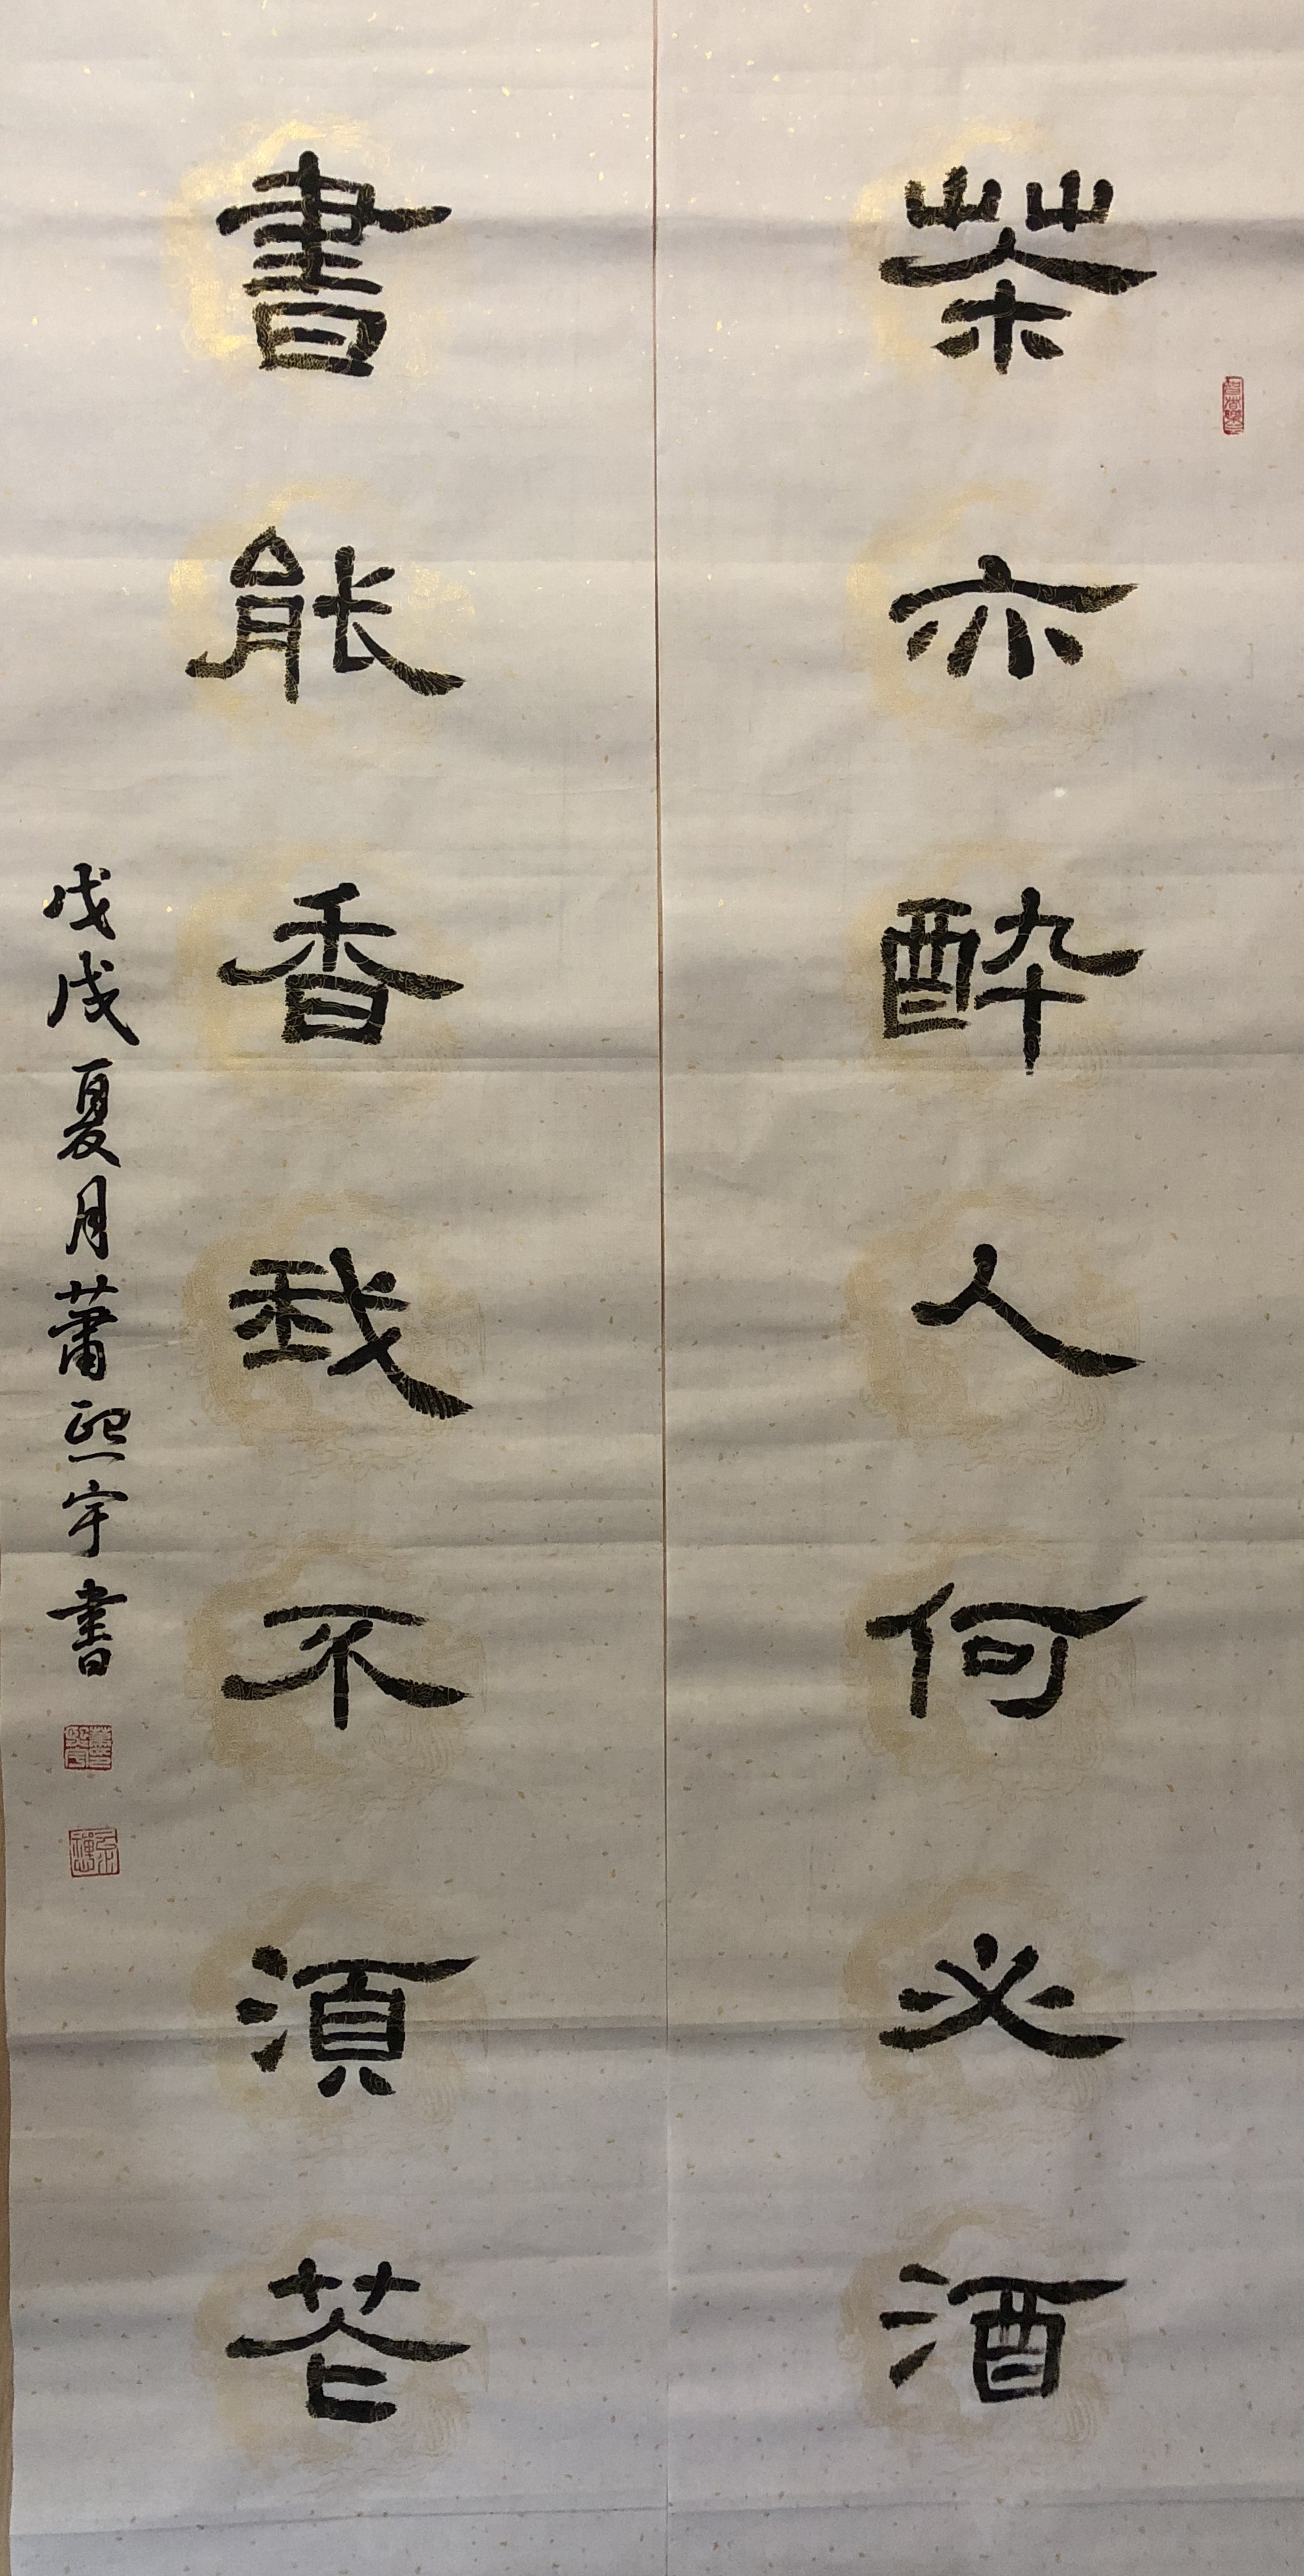 茶亦醉人何必酒
書能香我不須花
戊戌夏月蕭熙宇書